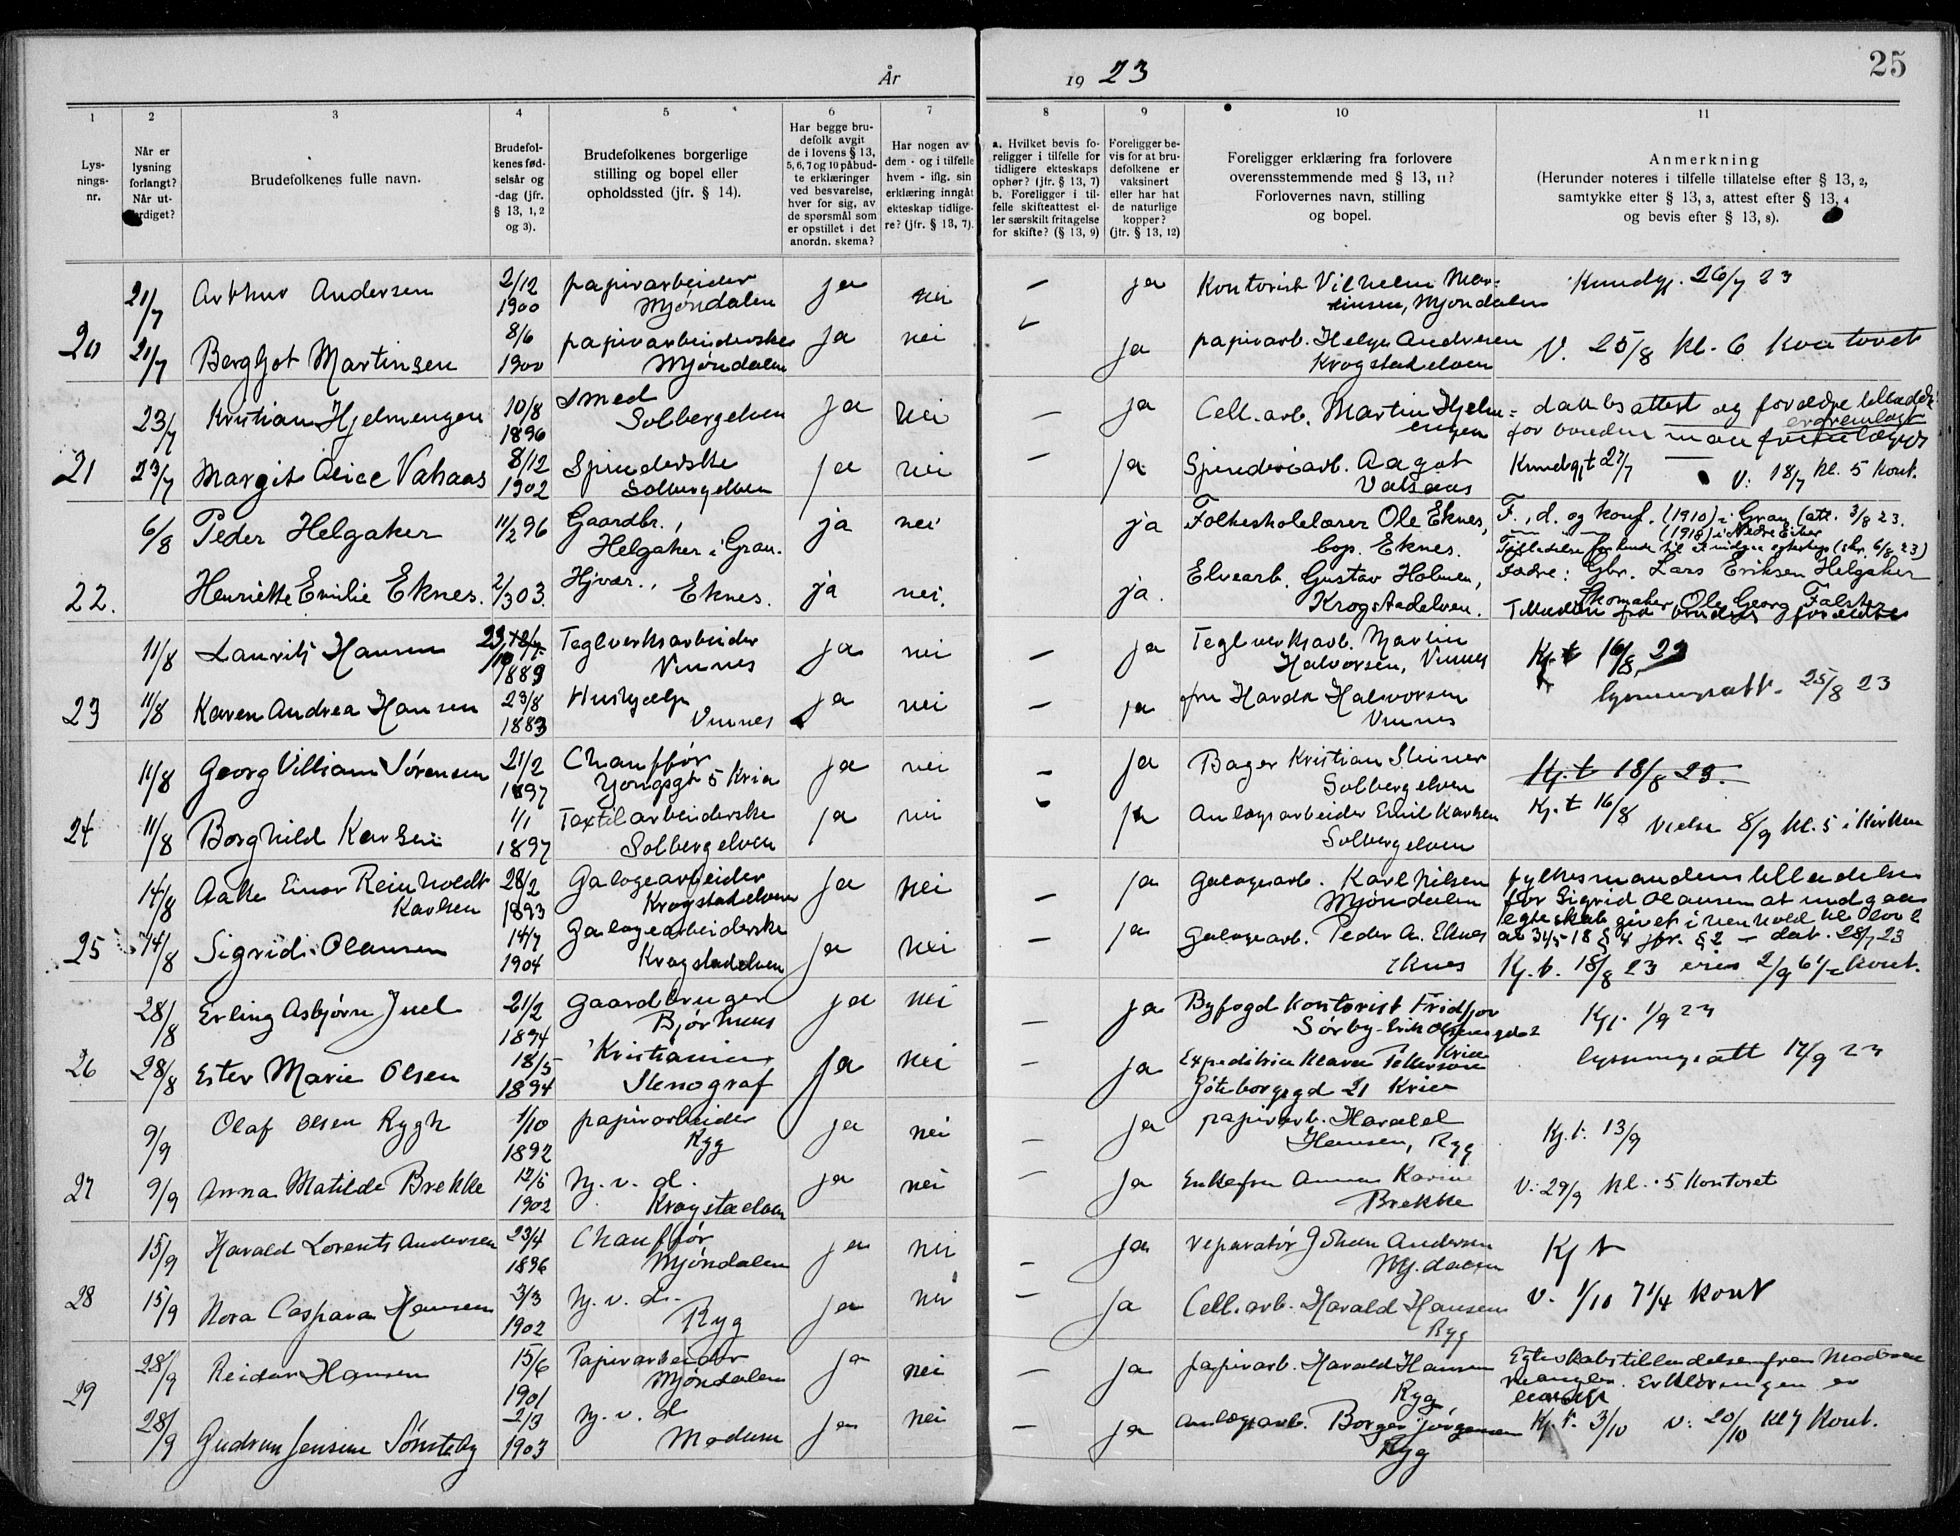 År 19 23
25
1 2 3 4 5 6 7 8 9 10 11
Lysningsnr.
Når er lysning forlangt? Når utferdiget?
Brudefolkenes fulle navn.
Brudefolkenes fødselsår og -dag (jfr. § 13, 1, 2 og 3).
Brudefolkenes borgerlige stilling og bopel eller opholdssted (jfr. § 14).
Har begge brudefolk avgit de i lovens § 13, 5, 6, 7 og 10 påbudte erklæringer ved besvarelse, hver for sig, av de spørsmål som er opstillet i det anordn. skema?
Har nogen av dem - og i tilfelle hvem - iflg. sin erklæring inngåt ekteskap tidligere? (jfr. § 13, 7).
a. Hvilket bevis foreligger i tilfelle for tidligere ekteskaps ophør? (jfr. § 13, 7) b. Foreligger i tilfelle skifteattest eller særskilt fritagelse for skifte? (§ 13, 9)
Foreligger bevis for at brudefolkene er vaksinert eller har hat de naturlige kopper? (jfr. § 13, 12)
Foreligger erklæring fra forlovere overensstemmende med § 13, 11? Forlovernes navn, stilling og bopel.
Anmerkning (Herunder noteres i tilfelle tillatelse efter § 13, 2, samtykke efter § 13, 3, attest efter § 13, 4 og bevis efter § 13, 8).
21/7 Arthur Andersen 2/12 1900 papirarbeider Mjøndalen ja nei — ja Kontorist Vilhelm Martinsen, Mjøndalen Kundgj. 26/7 23
20 21/7 Bergljot Martinsen 8/6 1900 papirarbeiderske Mjøndalen ja nei ja papirarb. Helge Andersen Krogstadelven V. 25/8 kl. 6 kontoret
23/7 Kristian Hjelmengen 10/8 1896 Smed Solbergelven ja nei — ja Cell. arb. Martin Hjelmengen daabsattest og forældre
21 23/7 Margit Alice Vahaas 8/12 1902 Spinderske Solbergelven ja nei — ja Spinderiarb. Aagot Vahaas Kundgjt 27/7 V: 18/7 kl. 5 kont.
6/8 Peder Helgaker 11/2 96 Gaardbr., Helgaker i Gran. ja nei ja Folkeskolelærer Ole Eknes, bop. Eknes. F., d. og konf. (1910) i Gran (att. 3/8 23.
(1918) i Nedre Eiker
22. Henriette Emilie Eknes. 2/3 03. Hjvær., Eknes. ja nei. ja. Elvearb. Gustav Holmen, Krogstadelven. Fædre: Gbr. Lars Eriksen Helgaker
Skomaker Ole Georg Falster
11/8 Laurits Hansen 23/10 1889 Teglverksarbeider Vinnes ja nei — ja Teglverksarb. Martin Halvorsen, Vinnes Kj. t 16/8 23
23 11/8 Karen Andrea Hansen 23/8 1883 Hushjælp Vinnes ja nei — ja fru Hansda Halvorsen Vinnes lysningsatt. 25/8 23
11/8 Georg Villiam Sørensen 21/2 1897 Chauffør Yongsgt 5 Kria ja nei — ja Bager Kristian Steiner Solbergelven Kj. t 18/8 23.
24 11/8 Borghild Karlsen 1/1 1897 Textilarbeiderske Solbergelven ja nei ja Anlægsarbeider Emil Karlsen Solbergelven Kj. t 16/8 Vielse 8/9 kl. 5 i Kirken
14/8 Aake Einar Reinholdt Karlsen 28/2 1893 Galogearbeider Krogstadelven ja nei — ja Galogearb. Karl Nilsen Mjøndalen fylkesmandens tilladelse for Sigrid Olausen at indgaa
25 14/8 Sigrid Olausen 14/7 1904 Galogearbeiderske Krogstadelven ja nei — ja Galogearb. Peder A. Eknes Eknes egteskab givet i henhold til lov av 31/5-18 § 4 jfr. § 2 — dat. 28/7 23
Kj. t. 18/8 23 2/9 6 1/2 kont.
28/8 Erling Asbjørn Juel 21/2 1894 Gaardbruger Bjørhuus ja nei — ja Byfogd kontorist Fridtjov Sørby Kria Kj. 1/9 23
26 28/8 Ester Marie Olsen 18/5 1894 Kristiania Stenograf ja nei — ja Expeditrice Klara Pettersen Göteborggd 21 Kria lysningsatt 17/9 23
9/9 Olaf Olsen Rygh 1/10 1892 papirarbeider Ryg ja nei — ja papirarb. Harald Hansen, Ryg Kj. t. 13/9
27 9/9 Anna Matilde Brekke 12/5 1902 Hj. v. d. Krogstadelven ja nei — ja Enkefru Anna Karine Brekke V: 29/9 kl. 5 Kontoret
15/9 Harald Lorents Andersen 23/4 1896 Chauffør Mjøndalen ja nei — ja reparatør Johan Andersen Mj.dalen Kj t
28 15/9 Nora Caspara Hansen 3/3 1902 Hj. v. d. Ryg ja nei — ja Cell. arb. Harald Hansen Ryg V. 1/10 7 1/4 kont
28/9 Reidar Hansen 15/6 1901 Papirarbeider Mjøndalen ja nei — ja papirarb. Harald Hansen Ryg Egteskabstilladelsen fra Moderen mangler. Erklæringen er
29 28/9 Gudrun Jensine Sønsteby 2/3 1903 Hj. v. d. Modum ja nei — ja Anlægsarb. Borger Jørgensen Ryg Kj t. 3/10 V: 20/10 kl 7 Kont.